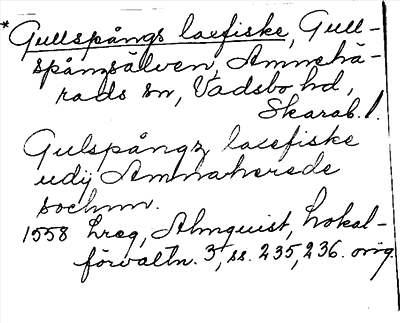 *Gullspångs laxfiske, Gull-
spångsälven, Amnehä-
rads sn, Vadsbo hd,
Skarab. l.
Gulspångz laxefiske
udij Amnaherede
sochnn.
1558 hreg, Almquist, Lokal-
förvaltn. 3, ss. 235, 236. orig.